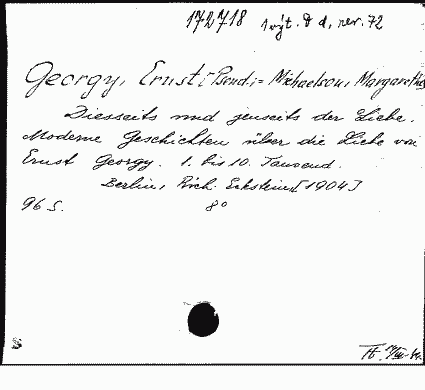 172718 1 výt. & d, rev. 72
Georgy, Ernst [Pseud.;= Michaelson, Margarethe
Diesseits und jenseits der Liebe.
Moderne Geschichten über die Liebe von
Ernst Georgy. 1. bis 10. Tausend.
Berlin, Rich. Eckstein [1904]
96 S. 8°